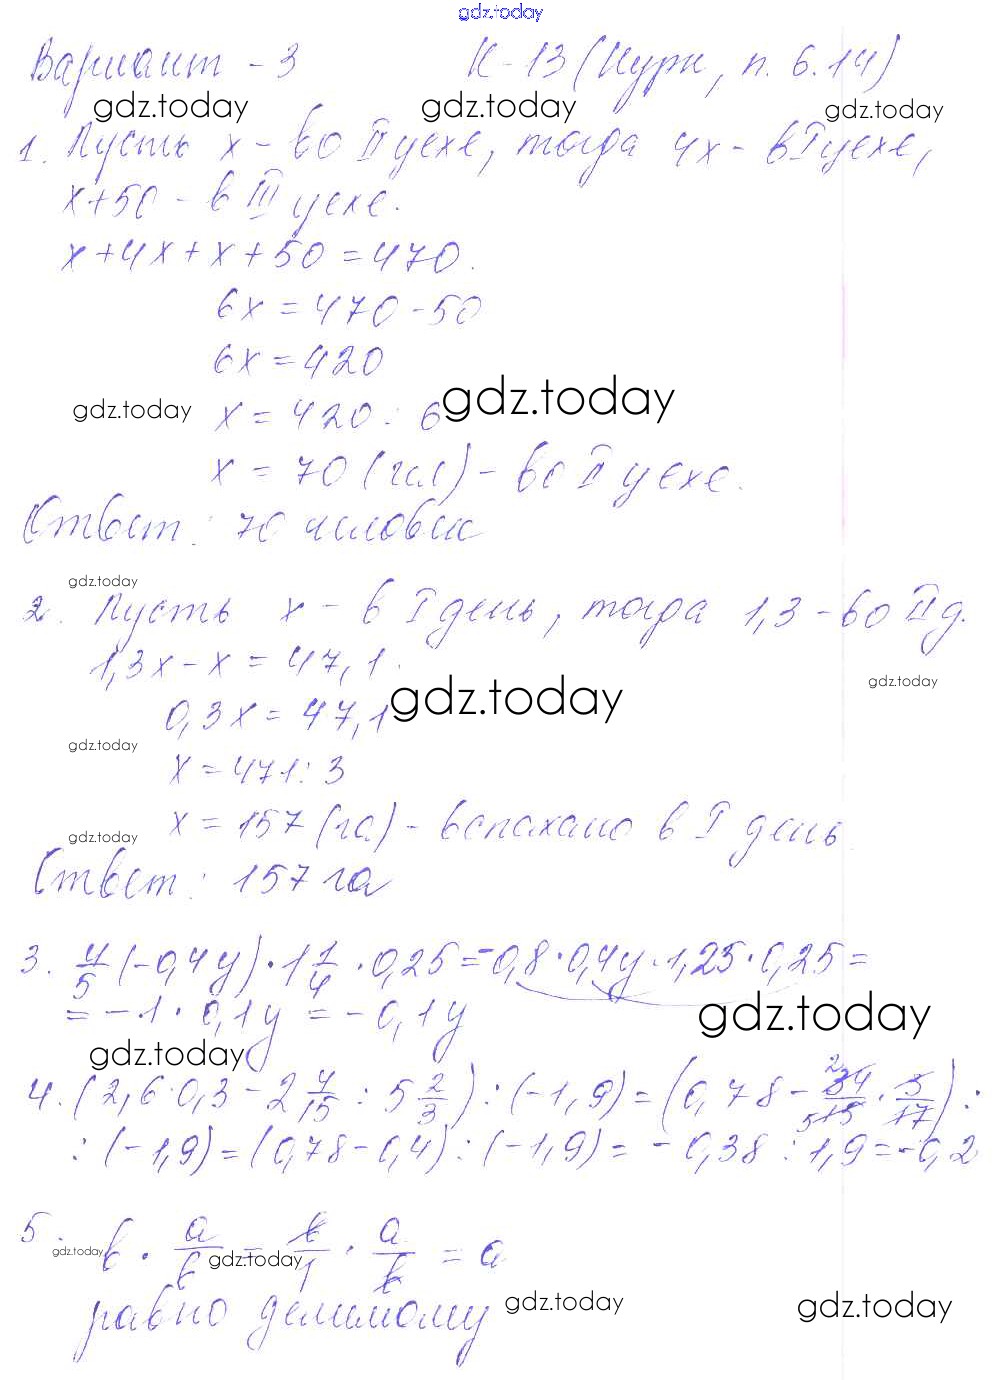 gdz.today
Вариант - 3 К-13 (Нурк, п. 6.14)
gdz.today gdz.today gdz.today
1. Пусть x - во II цехе, тогда 4x - в I цехе,
x+50 - в III цехе.
x+4x+x+50=470.
6x=470-50
6x=420
gdz.today x=420:6 gdz.today
x=70 (чел) - во II цехе.
Ответ: 70 человек
gdz.today
2. Пусть x - в I день, тогда 1,3 - во II д.
1,3x-x=47,1.
gdz.today
0,3x=47,1 gdz.today
gdz.today
x=471:3
x=157 (га) - вспахано в I день.
gdz.today
Ответ: 157 га
3. 4/5 (-0,4y)·1 1/4·0,25=-0,8·0,4y·1,25·0,25=
=-1·0,1y=-0,1y gdz.today
gdz.today
4. (2,6·0,3-2 4/15:5 2/3):(-1,9)=(0,78-34/15·3/17):
:(-1,9)=(0,78-0,4):(-1,9)=-0,38:1,9=-0,2
5. b·a/b=b/1·a/b=a
gdz.today gdz.today
равно делимому gdz.today gdz.today